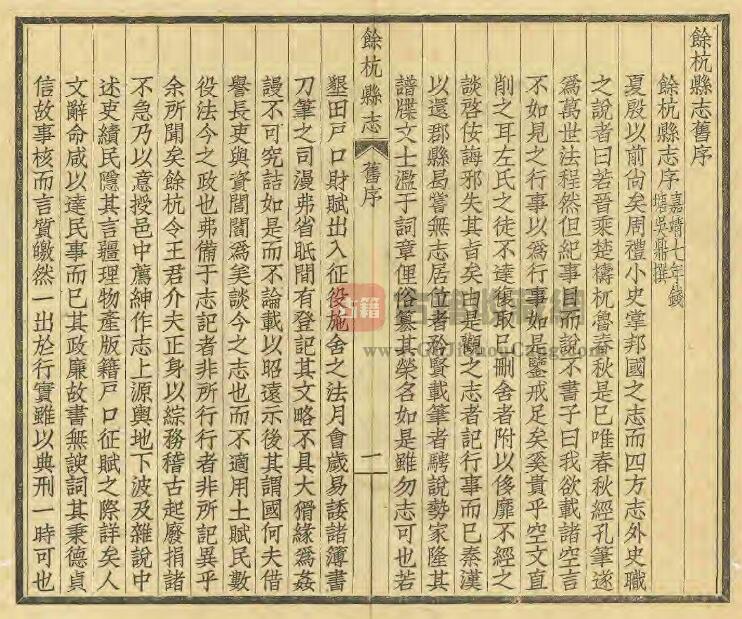 餘杭縣志舊序
餘杭縣志序嘉靖七年錢塘吳鼎撰
夏殷以前尙矣周禮小史掌邦國之志而四方志外史職
之說者曰若晉乘楚檮杌魯春秋是已唯春秋經孔筆遂
爲萬世法程然但紀事目而說不書子曰我欲載諸空言
不如見之行事以爲行事如是鑒戒足矣奚貴乎空文直
削之耳左氏之徒不達復取已刪舍者附以侈靡不經之
談啓佞誨邪失其旨矣由是觀之志者記行事而已秦漢
以還郡縣曷嘗無志居位者矜賢載筆者騁說勢家隆其
譜牒文士濫于詞章俚俗纂其榮名如是雖勿志可也若
餘杭縣志
舊序
一
墾田戸口財賦出入征役施舍之法月會歲易諉諸簿書
刀筆之司漫弗省眂間有登記其文略不具大猾緣爲姦
謾不可究詰如是而不論載以昭遠示後其謂國何夫借
譽長吏與資闇闇爲美談今之志也而不適用土賦民數
役法今之政也弗備于志記者非所行行者非所記異乎
余所聞矣餘杭令王君介夫正身以綜務稽古起廢捐諸
不急乃以意授邑中薦紳作志上源輿地下波及雜說中
述吏績民隱其言疆理物產版籍戸口征賦之際詳矣人
文辭命咸以達民事而已其政廉故書無諛詞其秉德貞
信故事核而言質皦然一出於行實雖以典刑一時可也
古籍收藏網
www.GuJiShouCang.com